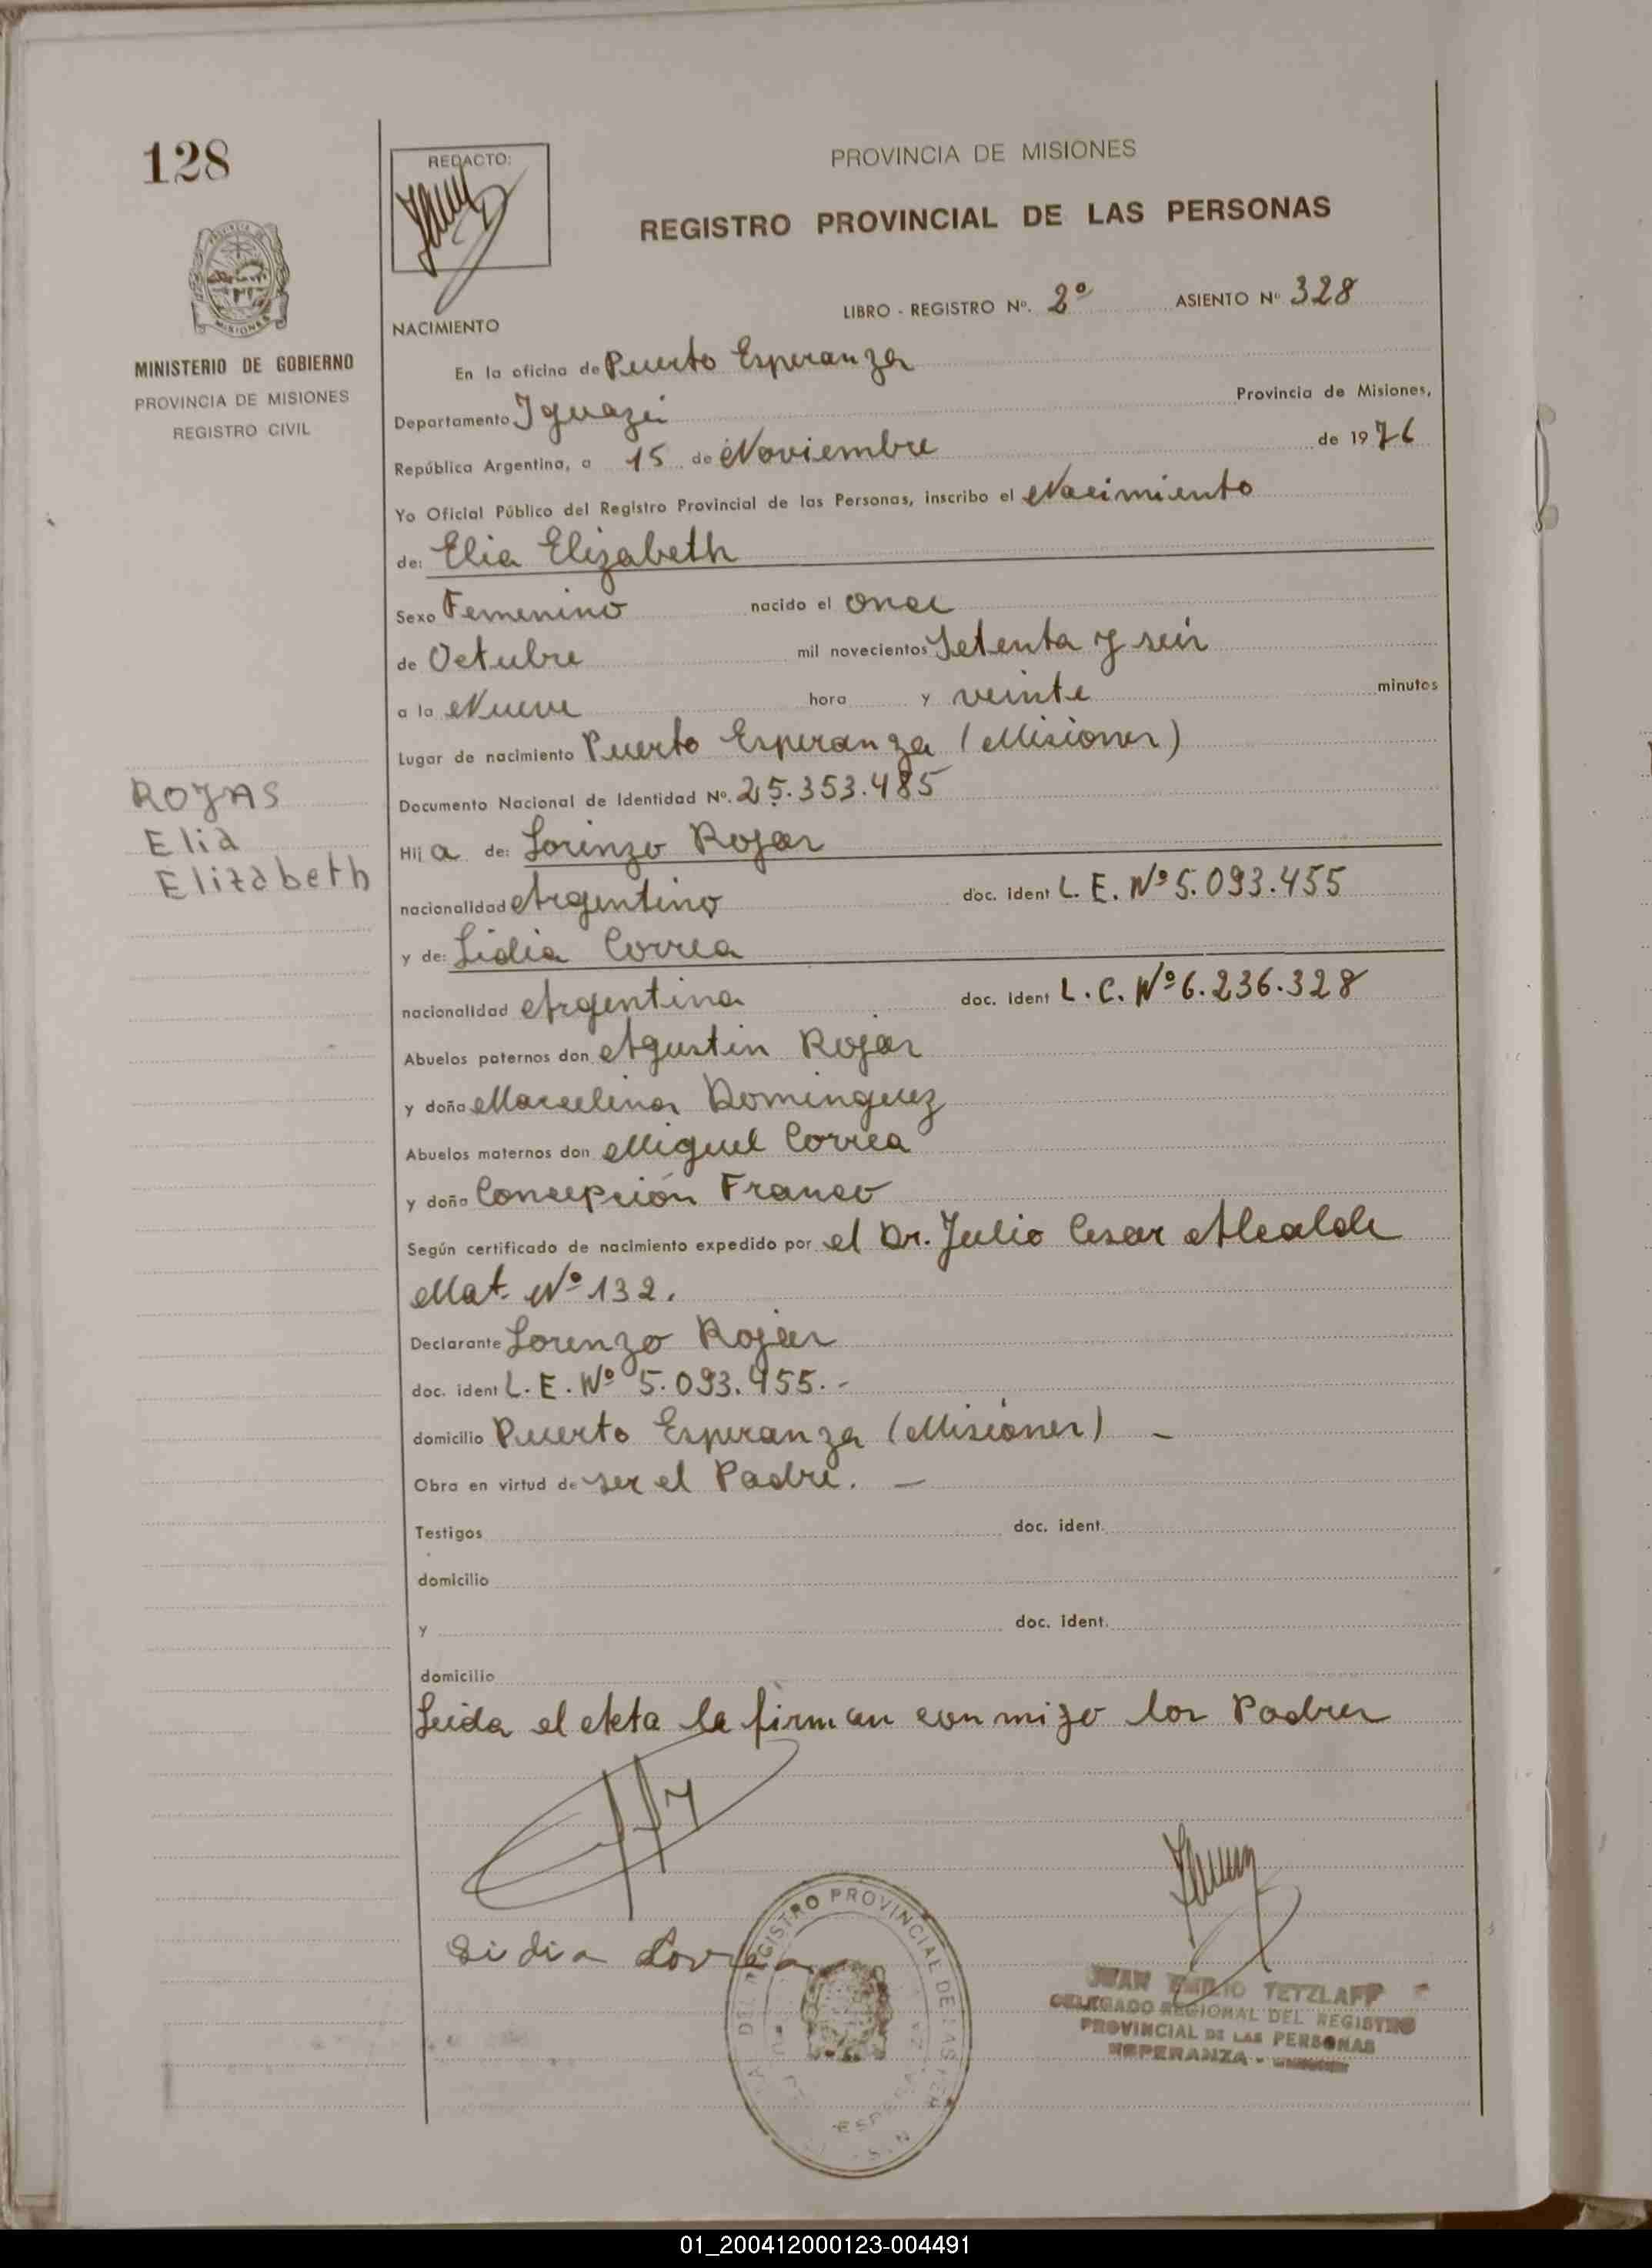 128
REDACTO:
PROVINCIA DE MISIONES
REGISTRO PROVINCIAL DE LAS PERSONAS
MISIONES
MINISTERIO DE GOBIERNO
PROVINCIA DE MISIONES
REGISTRO CIVIL
LIBRO - REGISTRO Nº. 2º ASIENTO Nº 328
NACIMIENTO
En la oficina de Puerto Esperanza
Departamento Iguazú Provincia de Misiones,
República Argentina, a 15 de Noviembre de 1976
Yo Oficial Público del Registro Provincial de las Personas, inscribo el Nacimiento
de: Elia Elizabeth
Sexo Femenino nacido el once
de Octubre mil novecientos Setenta y seis
a la Nueve hora y veinte minutos
Lugar de nacimiento Puerto Esperanza (Misiones)
ROJAS
Elia
Elizabeth
Documento Nacional de Identidad Nº. 25.353.485
Hij a de: Lorenzo Rojas
nacionalidad Argentino doc. ident L. E. Nº 5.093.455
y de: Lidia Correa
nacionalidad Argentina doc. ident L. C. Nº 6.236.328
Abuelos paternos don Agustin Rojas
y doña Marcelina Dominguez
Abuelos maternos don Miguel Correa
y doña Concepción Franco
Según certificado de nacimiento expedido por el Dr. Julio Cesar Alcalde
Mat. Nº 132.
Declarante Lorenzo Rojas
doc. ident L. E. Nº 5.093.455.-
domicilio Puerto Esperanza (Misiones) -
Obra en virtud de ser el Padre. -
Testigos doc. ident.
domicilio
y doc. ident.
domicilio
Leida el Acta la firman conmigo los Padres
Lidia Correa
DEL REGISTRO PROVINCIAL DE LAS PER
JUAN EMILIO TETZLAFF
DELEGADO REGIONAL DEL REGISTRO
PROVINCIAL DE LAS PERSONAS
ESPERANZA -
01_200412000123-004491